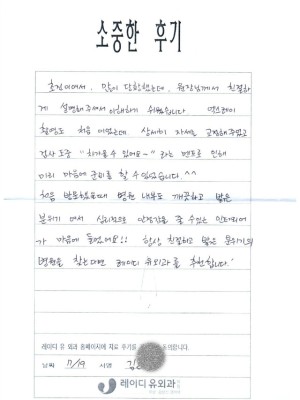 소중한 후기
초진이여서, 많이 당황했는데, 원장님께서 친절하
게 설명해주셔서 이해하기 쉬웠습니다. 엑스레이
촬영도 처음이었는데, 상세히 자세를 교정해주었고
검사 도중 "차가울 수 있어요~" 라는 멘트로 인해
미리 마음에 준비를 할 수 있었습니다.^^
처음 방문했을때 병원 내부도 깨끗하고 밝은
분위기 여서 심리적으로 안정감을 줄 수있는 인테리어
가 마음에 들었어요!! 항상 친절하고 밝은 분위기의
병원을 찾는다면 레이디유외과를 추천합니다.
레이디 유 외과 홈페이지에 치료 후기를 동의합니다.
날짜 7/19 서명 김
레이디 유외과